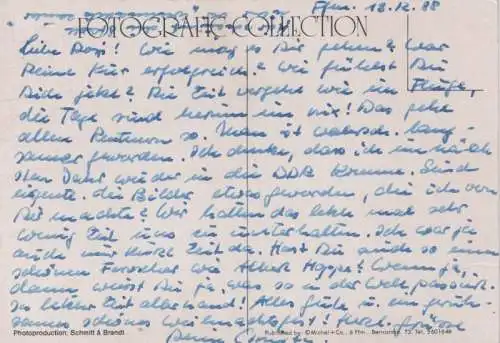 Ffm. 12.12.88
FOTOGRAFIE-COLLECTION
Liebe Rosi! Wie mag es Dir gehen? War
Deine Kur erfolgreich? Wie fühlst Du
Dich jetzt? Die Zeit vergeht wie im Fluge,
die Tage sind herum im nix! Das geht
allen Rentnern so. Man ist wahrsch. lang-
samer geworden. Ich denke, dass ich im näch-
sten Jahr wieder in die DDR komme. Sind
eigentl. die Bilder etwas geworden, die ich von
Dir machte? Wir hatten das letzte mal sehr
wenig Zeit uns zu unterhalten. Ich war ja
auch nur kurze Zeit da. Hast Du auch so einen
schönen Fernseher wie Hoppe? Wenn ja,
dann weisst Du ja, was so in der Welt passiert.
In letzter Zeit allerhand! Alles Gute u. ein geruh-
sames schönes Weihnachtsfest! Herzl. Grüsse
Deine
Photoproduction: Schmitt & Brandt
Published by: © Michel + Co., 6 Ffm., Bernerstr. 73, Tel.